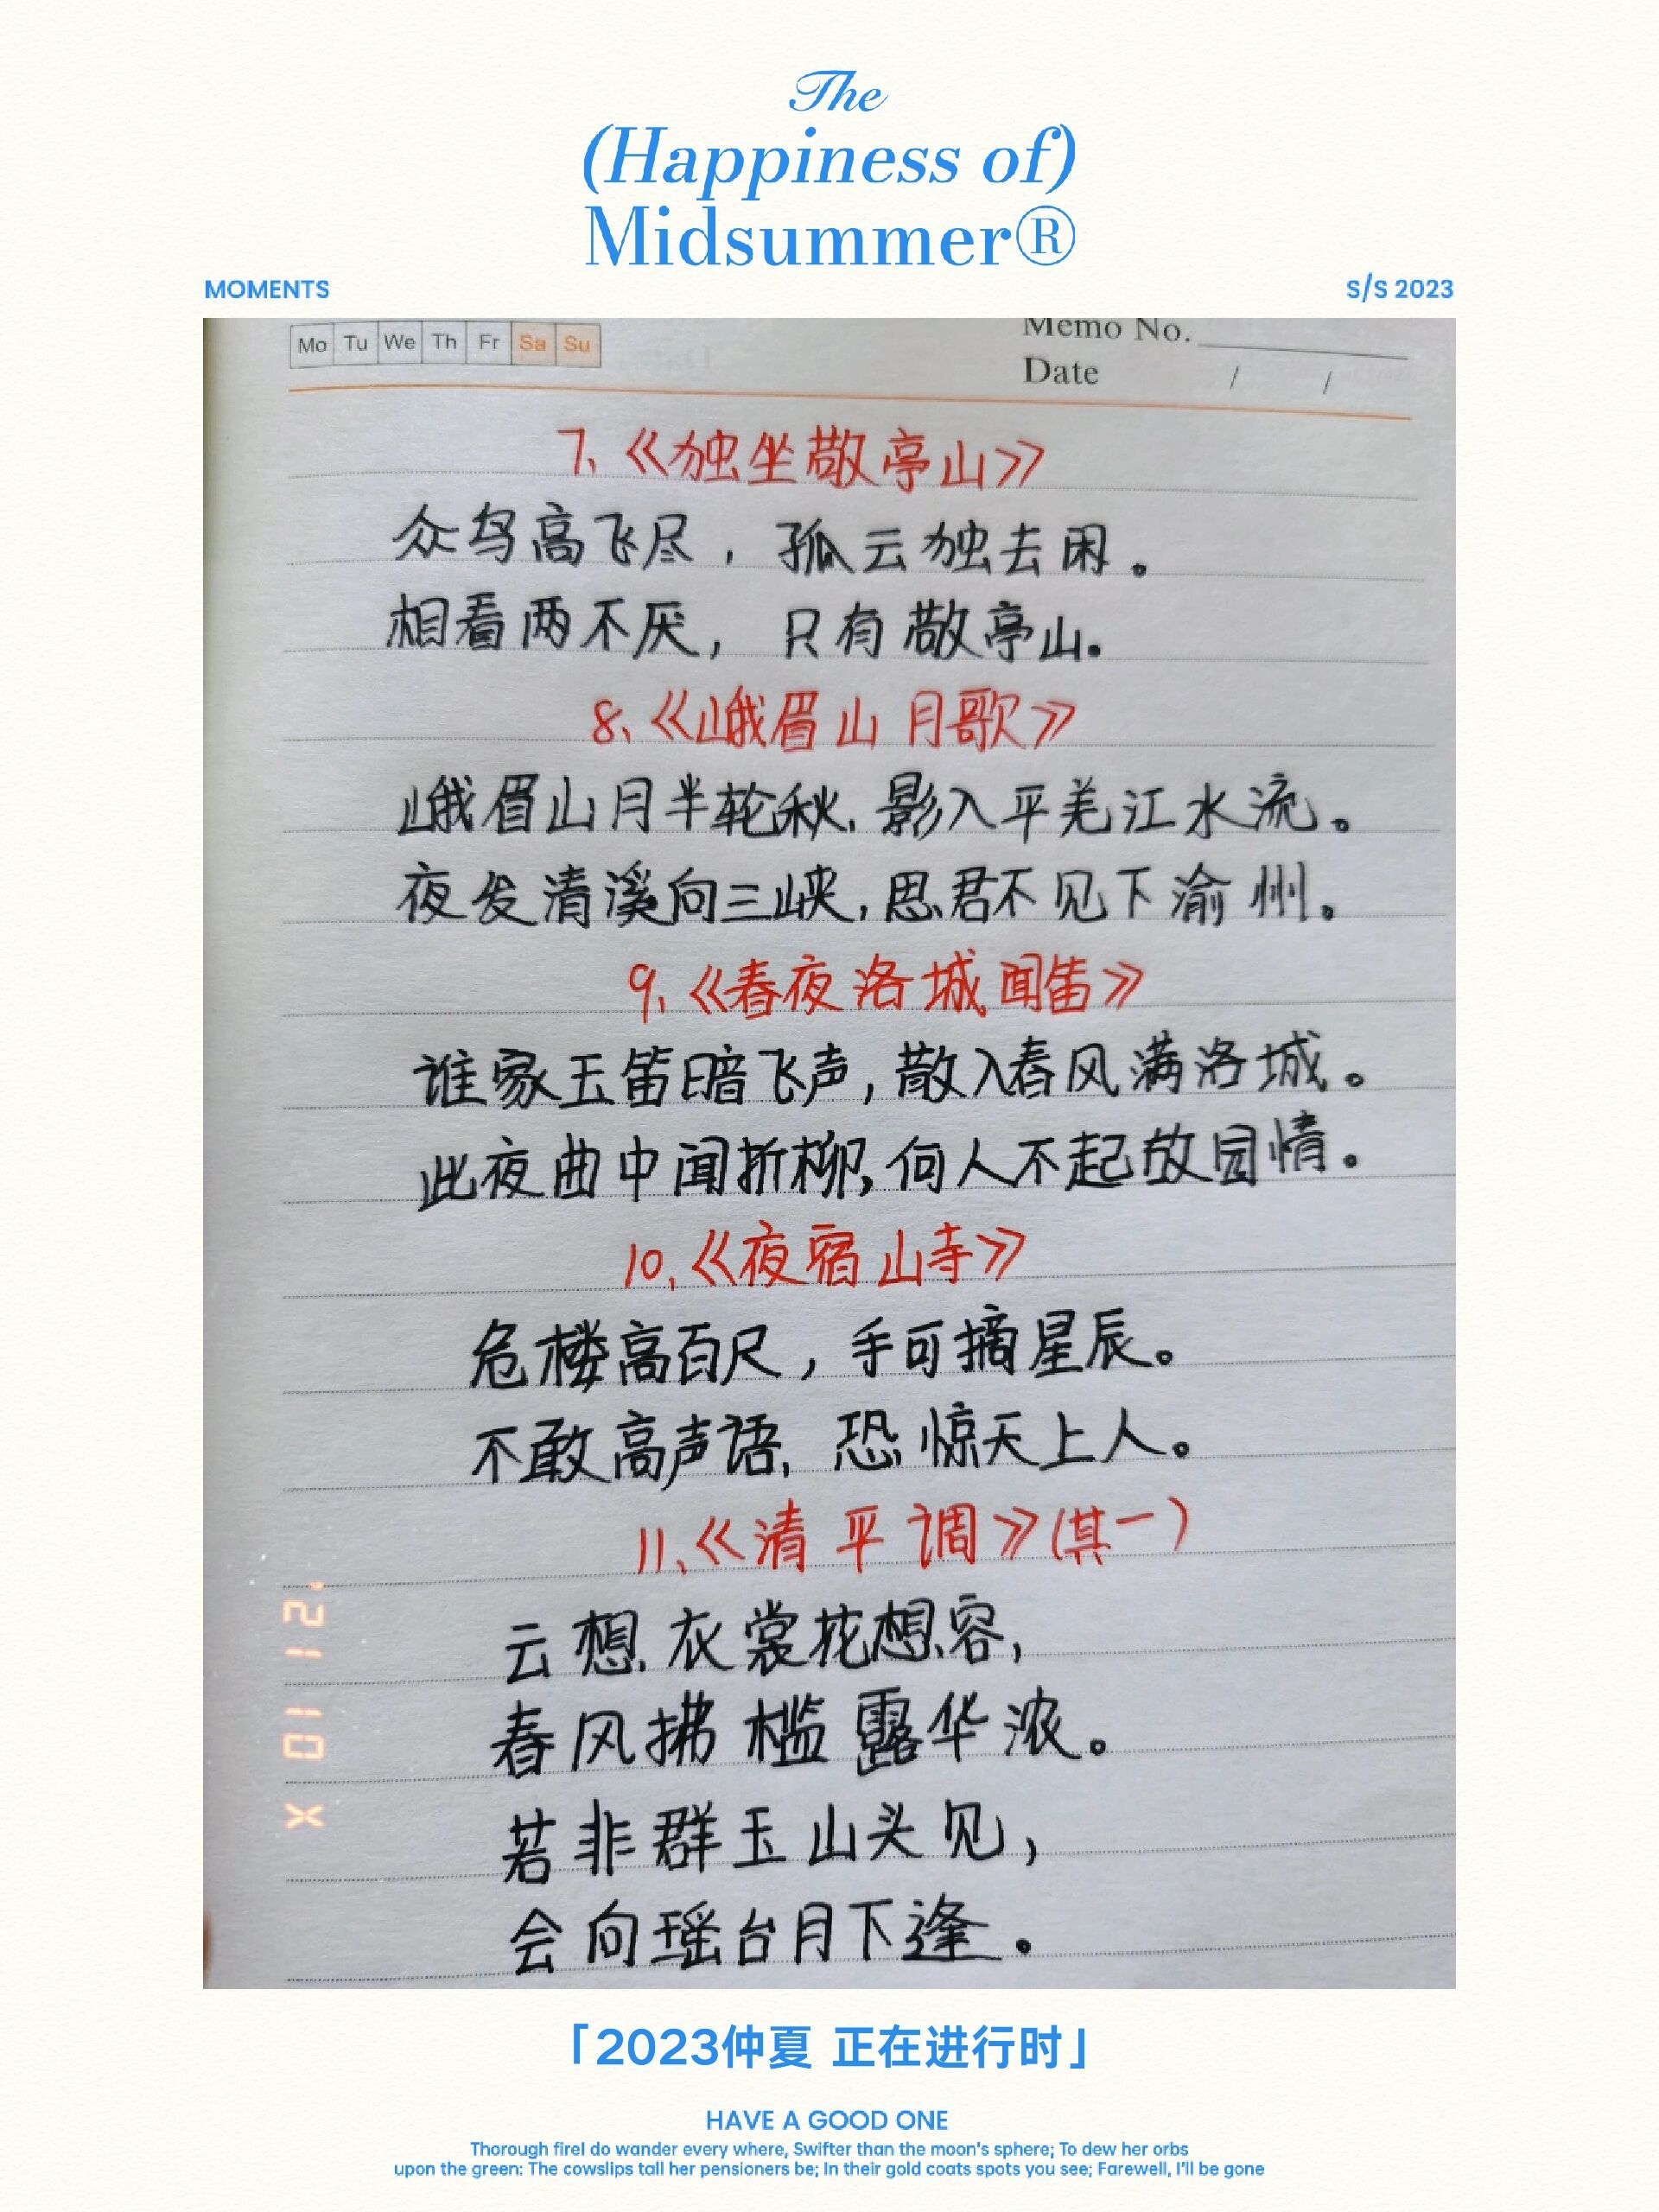 The
(Happiness of)
Midsummer®
MOMENTS
S/S 2023
Mo Tu We Th Fr Sa Su
Memo No.
Date / /
7、《独坐敬亭山》
众鸟高飞尽，孤云独去闲。
相看两不厌，只有敬亭山。
8、《峨眉山月歌》
峨眉山月半轮秋，影入平羌江水流。
夜发清溪向三峡，思君不见下渝州。
9、《春夜洛城闻笛》
谁家玉笛暗飞声，散入春风满洛城。
此夜曲中闻折柳，何人不起故园情。
10、《夜宿山寺》
危楼高百尺，手可摘星辰。
不敢高声语，恐惊天上人。
11、《清平调》(其一)
云想衣裳花想容，
春风拂槛露华浓。
若非群玉山头见，
会向瑶台月下逢。
'21 10 X
「2023仲夏 正在进行时」
HAVE A GOOD ONE
Thorough fireI do wander every where, Swifter than the moon's sphere; To dew her orbs
upon the green: The cowslips tall her pensioners be; In their gold coats spots you see; Farewell, I'll be gone